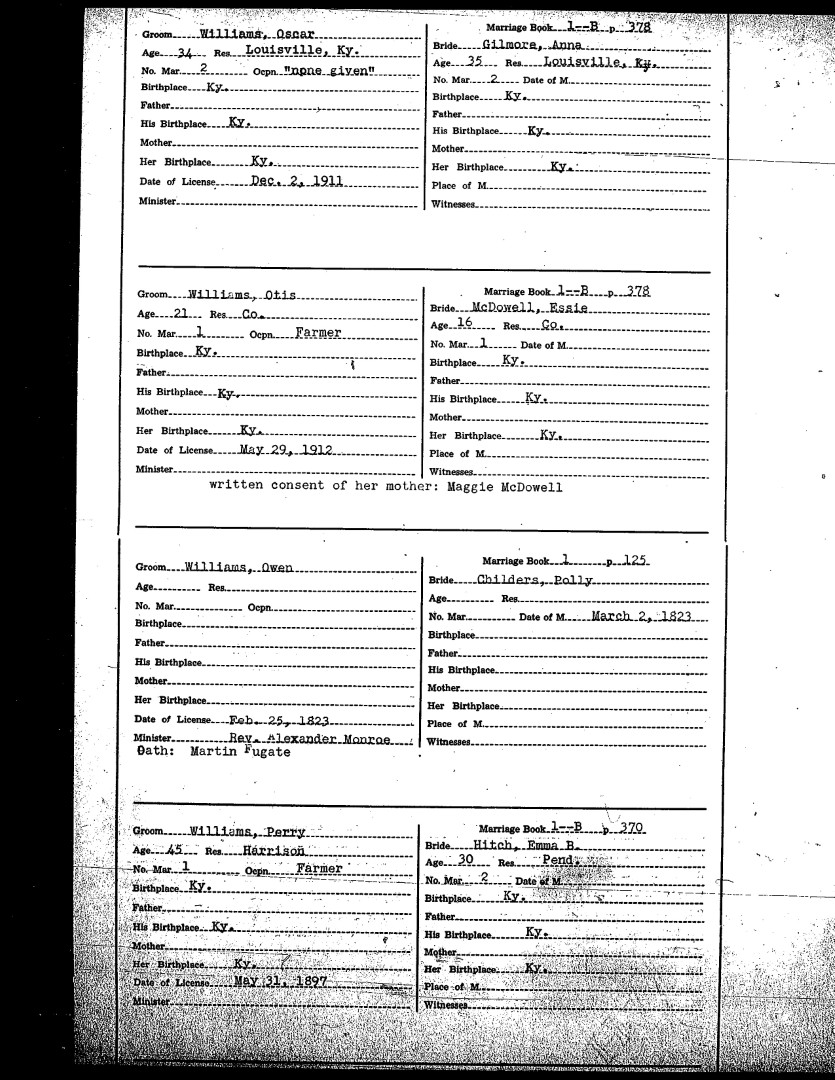 Groom Williams, Oscar
Age 34 Res. Louisville, Ky.
No. Mar. 2 Ocpn. "none given"
Birthplace Ky.
Father
His Birthplace Ky.
Mother
Her Birthplace Ky.
Date of License Dec. 2, 1911
Minister
Marriage Book 1--B p. 378
Bride Gilmore, Anna
Age 35 Res. Louisville, Ky.
No. Mar. 2 Date of M.
Birthplace Ky.
Father
His Birthplace Ky.
Mother
Her Birthplace Ky.
Place of M.
Witnesses
Groom Williams, Otis
Age 21 Res. Co.
No. Mar. 1 Ocpn. Farmer
Birthplace Ky.
Father
His Birthplace Ky.
Mother
Her Birthplace Ky.
Date of License May 29, 1912
Minister
Marriage Book 1--B p. 378
Bride McDowell, Essie
Age 16 Res. Co.
No. Mar. 1 Date of M.
Birthplace Ky.
Father
His Birthplace Ky.
Mother
Her Birthplace Ky.
Place of M.
Witnesses
written consent of her mother: Maggie McDowell
Groom Williams, Owen
Age Res.
No. Mar. Ocpn.
Birthplace
Father
His Birthplace
Mother
Her Birthplace
Date of License Feb. 25, 1823
Minister Rev. Alexander Monroe
Oath: Martin Fugate
Marriage Book 1 p. 125
Bride Childers, Polly
Age Res.
No. Mar. Date of M. March 2, 1823
Birthplace
Father
His Birthplace
Mother
Her Birthplace
Place of M.
Witnesses
Groom Williams, Perry
Age 45 Res. Harrison
No. Mar. 1 Ocpn. Farmer
Birthplace Ky.
Father
His Birthplace Ky.
Mother
Her Birthplace Ky.
Date of License May 31, 1897
Minister
Marriage Book 1--B p. 370
Bride Hitch, Emma B.
Age 30 Res. Pend.
No. Mar. 2 Date of M.
Birthplace Ky.
Father
His Birthplace Ky.
Mother
Her Birthplace Ky.
Place of M.
Witnesses